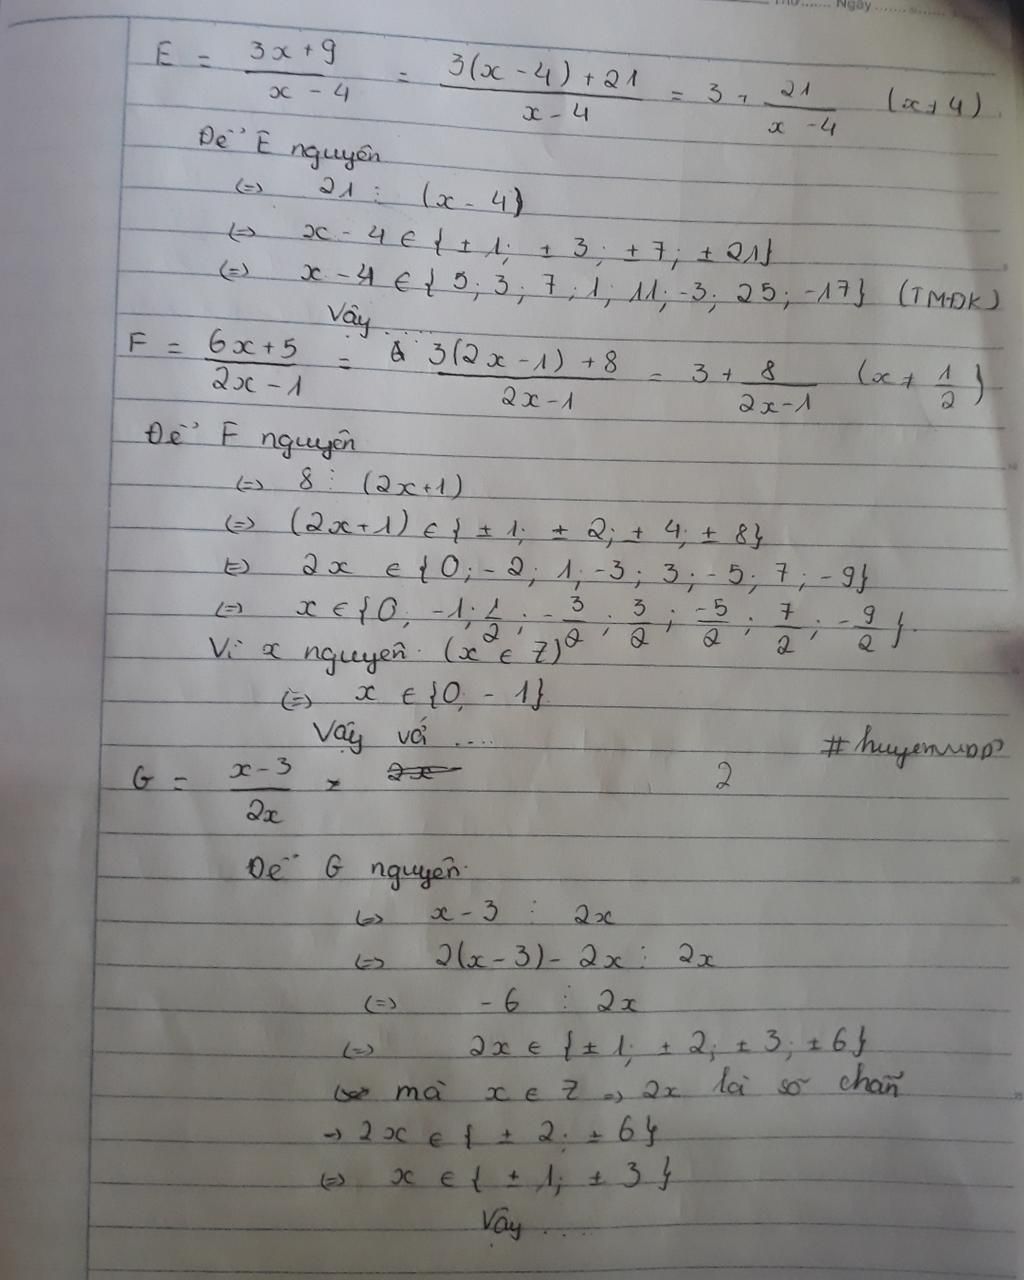 Thứ....... Ngày ..................
E = \frac{3x+9}{x-4} = \frac{3(x-4)+21}{x-4} = 3 + \frac{21}{x-4} (x ≠ 4)
Để E nguyên
<=> 21 ⋮ (x - 4)
<=> x - 4 ∈ { ± 1; ± 3; ± 7; ± 21}
<=> x - 4 ∈ { 5; 3; 7; 1; 11; -3; 25; -17} (TMĐK)
Vậy ....
F = \frac{6x+5}{2x-1} = \frac{3(2x-1)+8}{2x-1} = 3 + \frac{8}{2x-1} (x ≠ \frac{1}{2})
Để F nguyên
<=> 8 ⋮ (2x+1)
<=> (2x+1) ∈ { ± 1; ± 2; ± 4; ± 8}
<=> 2x ∈ {0; -2; 1; -3; 3; -5; 7; -9}
<=> x ∈ {0; -1; \frac{1}{2}; -\frac{3}{2}; \frac{3}{2}; \frac{-5}{2}; \frac{7}{2}; -\frac{9}{2}}.
Vì x nguyên (x ∈ Z)
<=> x ∈ {0; -1}.
Vậy với ....
G = \frac{x-3}{2x}
2
Để G nguyên
<=> x - 3 ⋮ 2x
<=> 2(x-3) - 2x ⋮ 2x
<=> -6 ⋮ 2x
<=> 2x ∈ { ± 1; ± 2; ± 3; ± 6}
mà x ∈ Z => 2x là số chẵn
-> 2x ∈ { ± 2; ± 6}
<=> x ∈ { ± 1; ± 3 }
Vậy ....